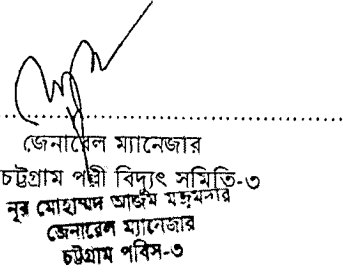 জেনারেল ম্যানেজার
চট্টগ্রাম পল্লী বিদ্যুৎ সমিতি-৩
নূর মোহাম্মদ আজম মজুমদার
জেনারেল ম্যানেজার
চট্টগ্রাম পবিস-৩